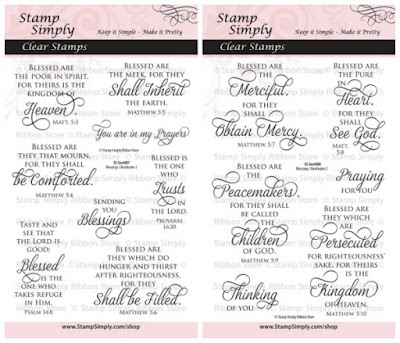 Stamp
Simply
Keep it Simple - Make it Pretty
Clear Stamps
Blessed are
the poor in spirit,
for theirs is the
kingdom of
Heaven.
Matt. 5:3
Blessed are
the meek, for they
Shall Inherit
the earth.
Matthew 5:5
You are in my Prayers
Blessed are
they that mourn,
for they shall
be Comforted.
Matthew 5:4
Blessed
is the
one who
Trusts
in the
Lord.
Proverbs
16:20
Sending
you
Blessings
Taste and
see that
the Lord is
good;
Blessed
is the
one who
takes refuge
in Him.
Psalm 34:8
Blessed are
they which do
hunger and thirst
after righteousness,
for they
Shall be Filled.
Matthew 5:6
www.StampSimply.com/shop
Stamp
Simply
Keep it Simple - Make it Pretty
Clear Stamps
Blessed are
the
Merciful,
for they
shall
Obtain Mercy.
Matthew 5:7
Blessed are
the Pure
in
Heart,
for they
shall
See God.
Matt. 5:8
Blessed are
the
Peacemakers,
for they shall
be called
the
Children
of God.
Matthew 5:9
Praying
for you
Blessed are
they which
are
Persecuted
for righteousness'
sake, for theirs
is the
Kingdom
of Heaven.
Matthew 5:10
Thinking
of you
www.StampSimply.com/shop
© Stamp Simply Ribbon Store